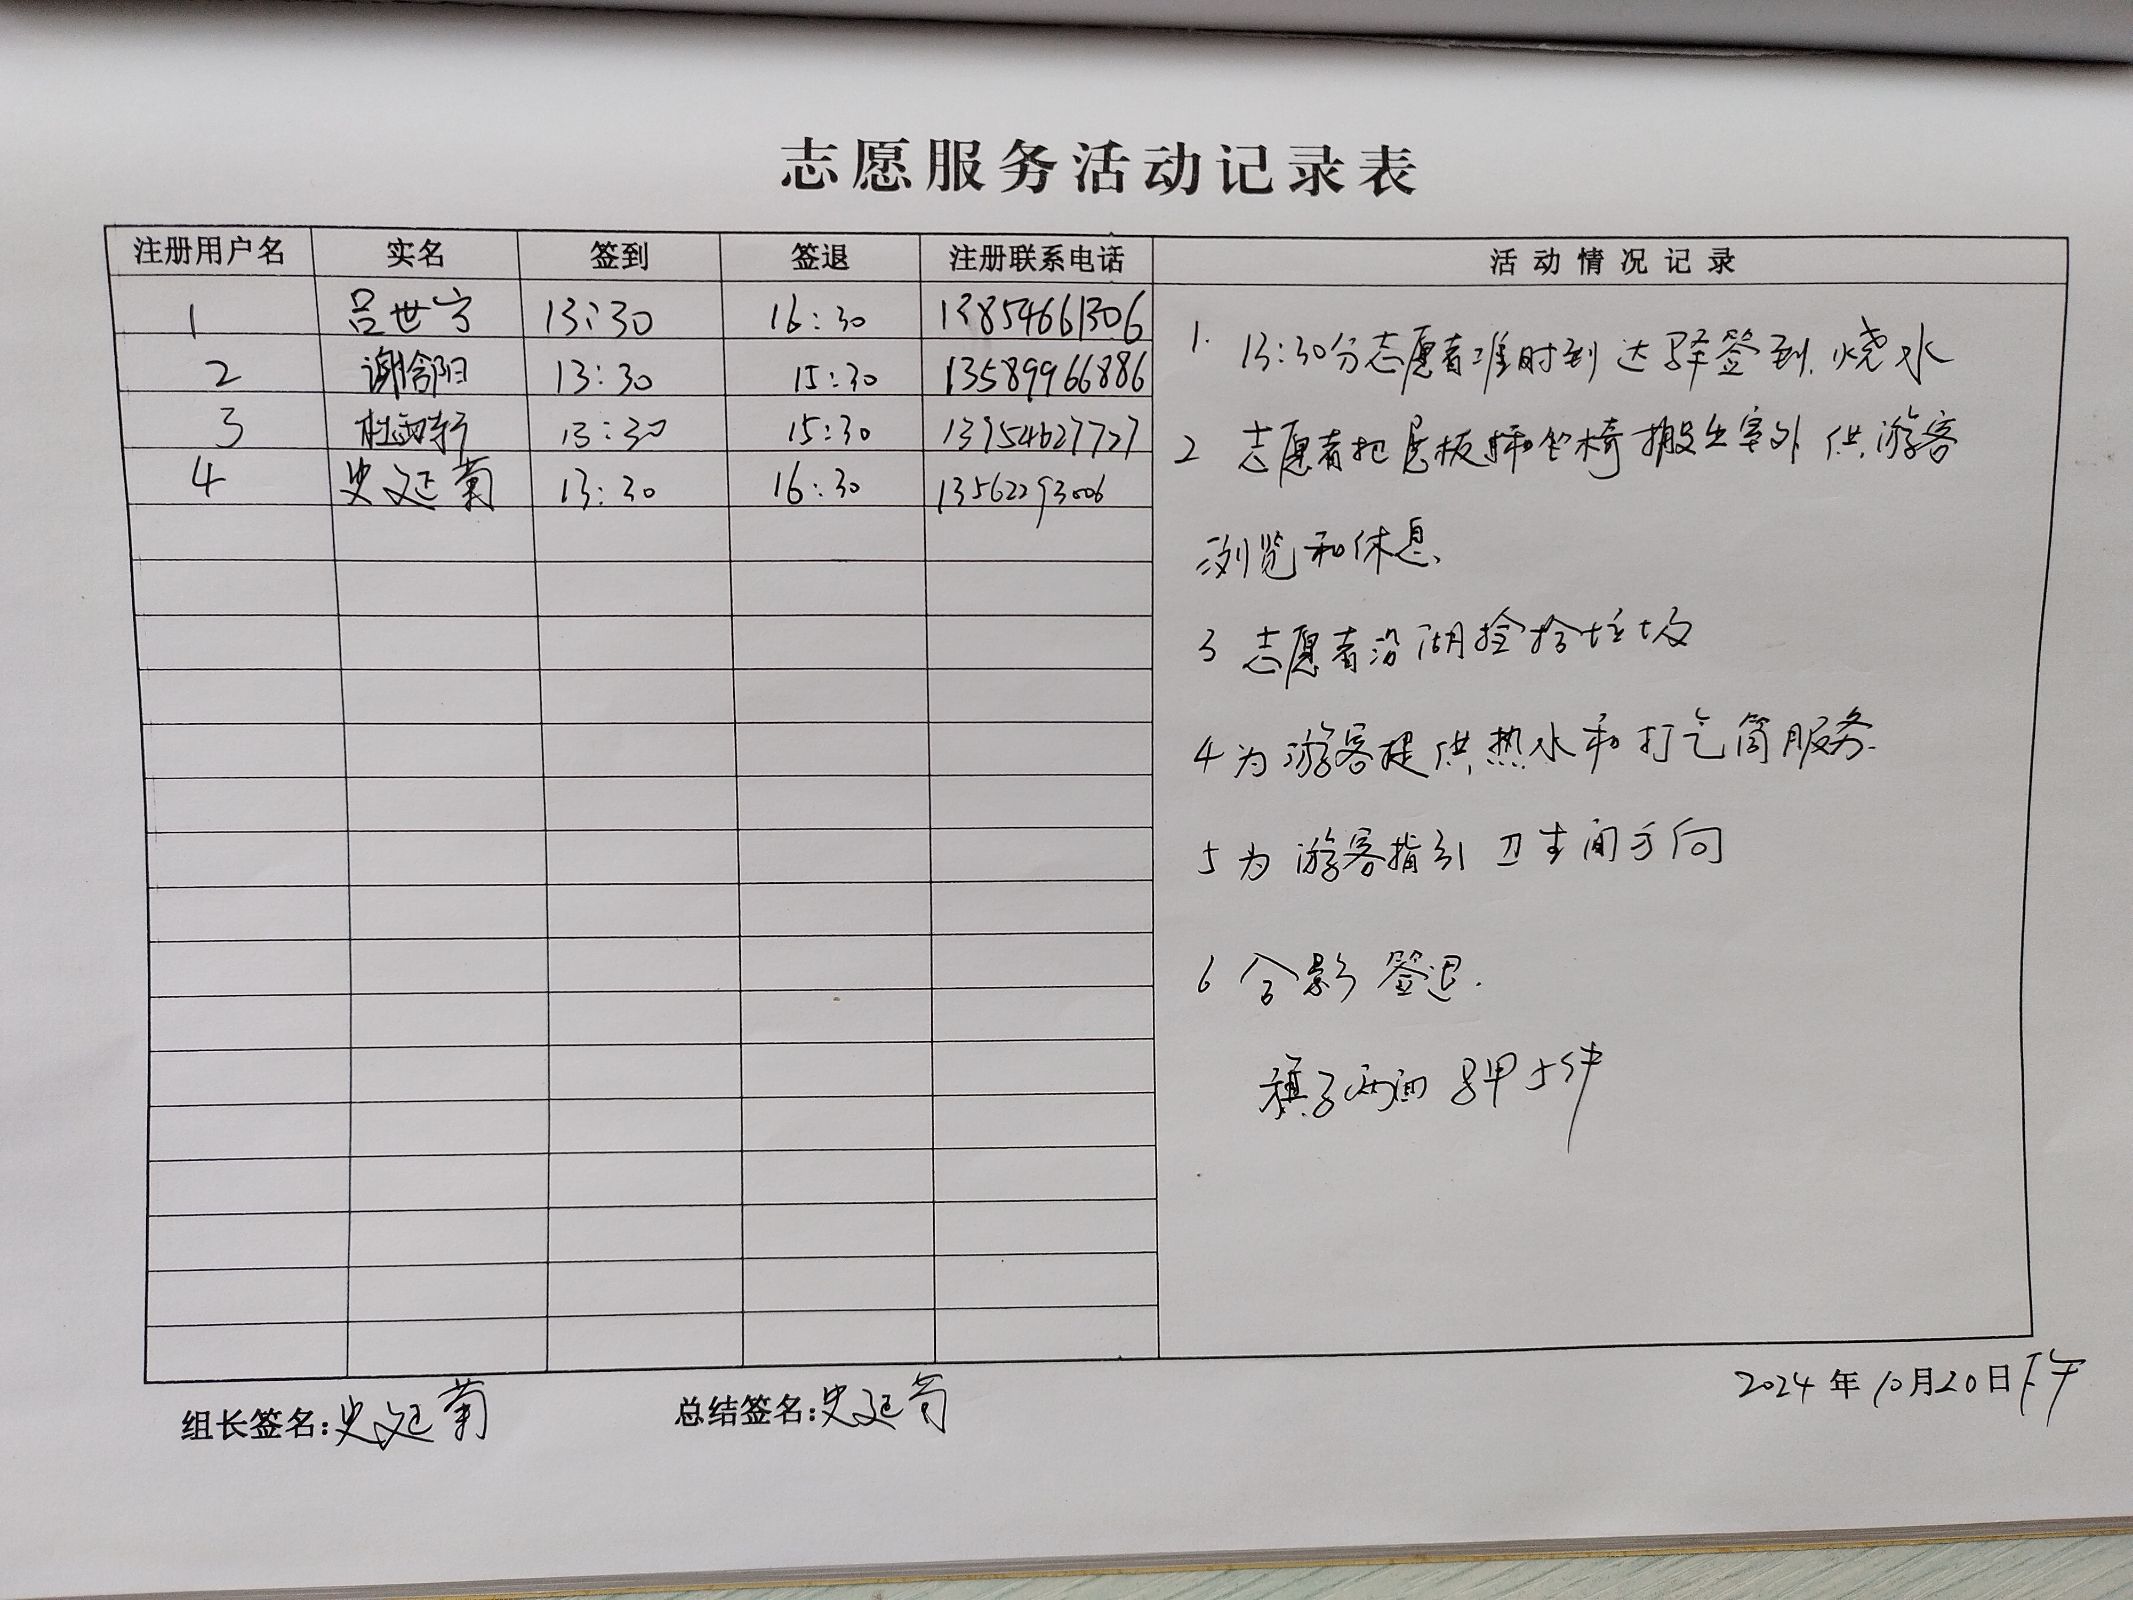 志愿服务活动记录表
注册用户名 实名 签到 签退 注册联系电话 活动情况记录
1 吕世宁 13:30 16:30 13854661306
2 谢 阳 13:30 15:30 13589966886
3 杜 轩 13:30 15:30 13954627727
4 史延菊 13:30 16:30 13562293006
1. 13:30分志愿者准时到达驿签到.烧水
2 志愿者把展板和坐椅搬出室外供游客
浏览和休息、
3 志愿者沿湖捡拾垃圾
4 为游客提供热水和打气筒服务.
5 为游客指引卫生间方向
6 合影 签退.
旗子两面 马甲5件
组长签名:史延菊 总结签名:史延菊
2024年10月20日下午